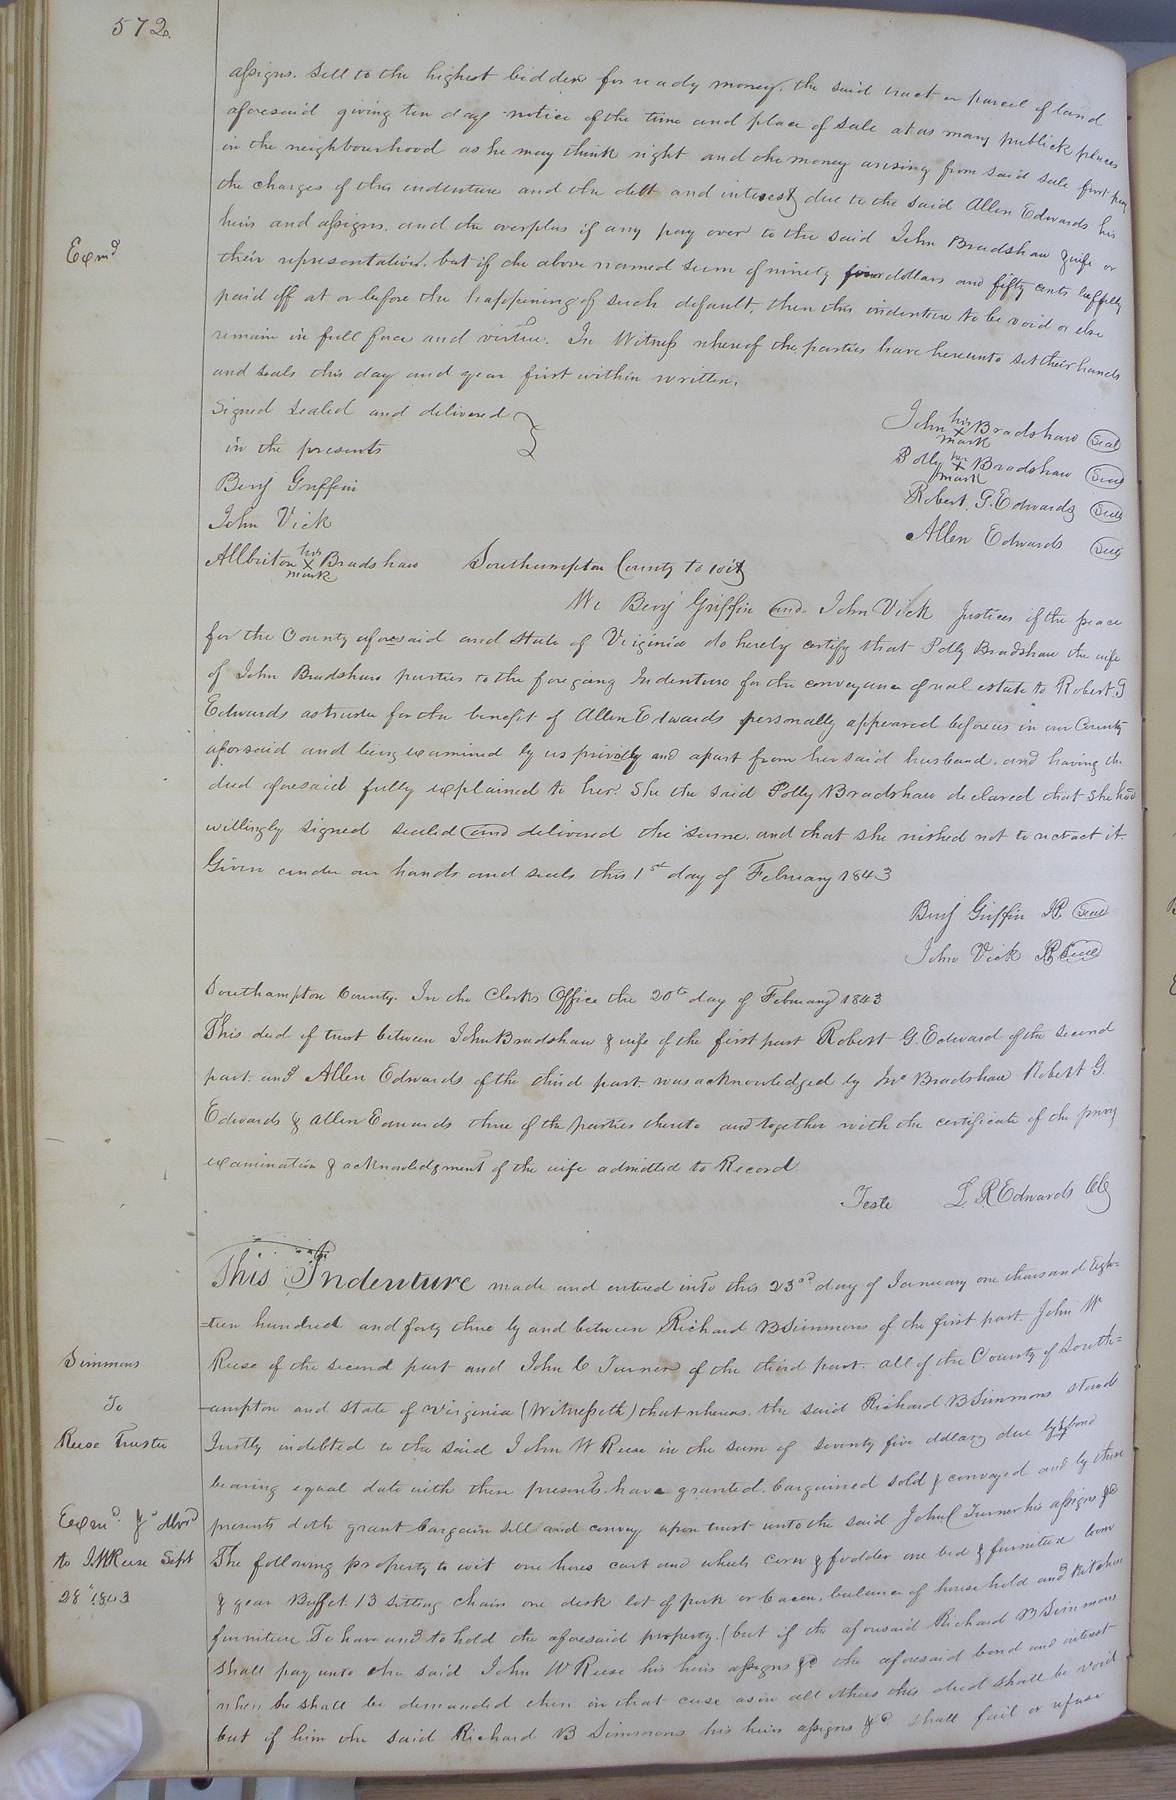 572.
assigns. Sell to the highest bidder for ready money, the said tract or parcel of land
aforesaid giving ten days notice of the time and place of sale at as many publick places
in the neighbourhood as he may think right and the money arising from said sale first pay
the charges of this indenture and the debt and interest due to the said Allen Edwards his
heirs and assigns. and the overplus if any pay over to the said John Bradshaw & wife or
Exmd
their representatives. but if the above named sum of ninety four dollars and fifty cents be fully
paid off at or before the happening of such default, then this indenture to be void or else
remain in full force and virtue. In Witness whereof the parties have hereunto set their hands
and seals this day and year first within written.
Signed sealed and delivered
in the presents
Benj Griffin
John Vick
Allbriton his X mark Bradshaw
John his X mark Bradshaw Seal
Polly her X mark Bradshaw Seal
Robert. G. Edwards Seal
Allen Edwards Seal
Southampton County to wit
We Benj Griffin and John Vick Justices of the peace
for the County aforesaid and State of Virginia do hereby certify that Polly Bradshaw the wife
of John Bradshaw parties to the foregoing Indenture for the conveyance of real estate to Robert G
Edwards as trustee for the benefit of Allen Edwards personally appeared before us in our County
aforsaid and being examined by us privily and apart from her said husband. and having the
deed aforesaid fully explained to her. She the said Polly Bradshaw declared that she had
willingly signed sealed and delivered the same. and that she wished not to retract it.
Given under our hands and seals this 1st day of February 1843
Benj Griffin JP Seal
John Vick JP Seal
Southampton County. In the Clerks Office the 20th day of February 1843
This deed of trust between John Bradshaw & wife of the first part Robert G. Edward of the second
part. and Allen Edwards of the third part. was acknowledged by Jno Bradshaw Robert G.
Edwards & Allen Edwards three of the parties thereto and together with the certificate of the privy
examination & acknowledgment of the wife admitted to Record
Teste L. R Edwards CC
This Indenture made and entered into this 23rd day of January one thousand Eigh=
=teen hundred and forty three by and between Richard B Simmons of the first part. John W
Simmons
To
Reese Trustee
Exmd. & dlvrd
to J W Reese Sept
28th 1843
Reese of the second part and John C Turner of the third part. all of the County of South=
=ampton and State of Virginia (Witnesseth) that whereas. the said Richard B Simmons stands
Justly indebted to the said John W Reese in the sum of seventy five dollars due by bond
bearing equal date with these presents. have granted. bargained sold & conveyed and by these
presents doth grant bargain sell and convey upon trust unto the said John C Turner his assigns &c
The following property to wit one horse cart and wheels corn & fodder one bed & furniture loom
& gear Buffet. 13 sitting chairs one desk lot of pork or bacon, balance of household and Kitchen
furniture To have and to hold the aforesaid property. (but if the aforesaid Richard B Simmons
shall pay unto the said John W Reese his heirs assigns &c the aforesaid bond and interest
when he shall be demanded then in that case as in all others this deed shall be void
but if him the said Richard B Simmons his heirs assigns &c shall fail or refuse